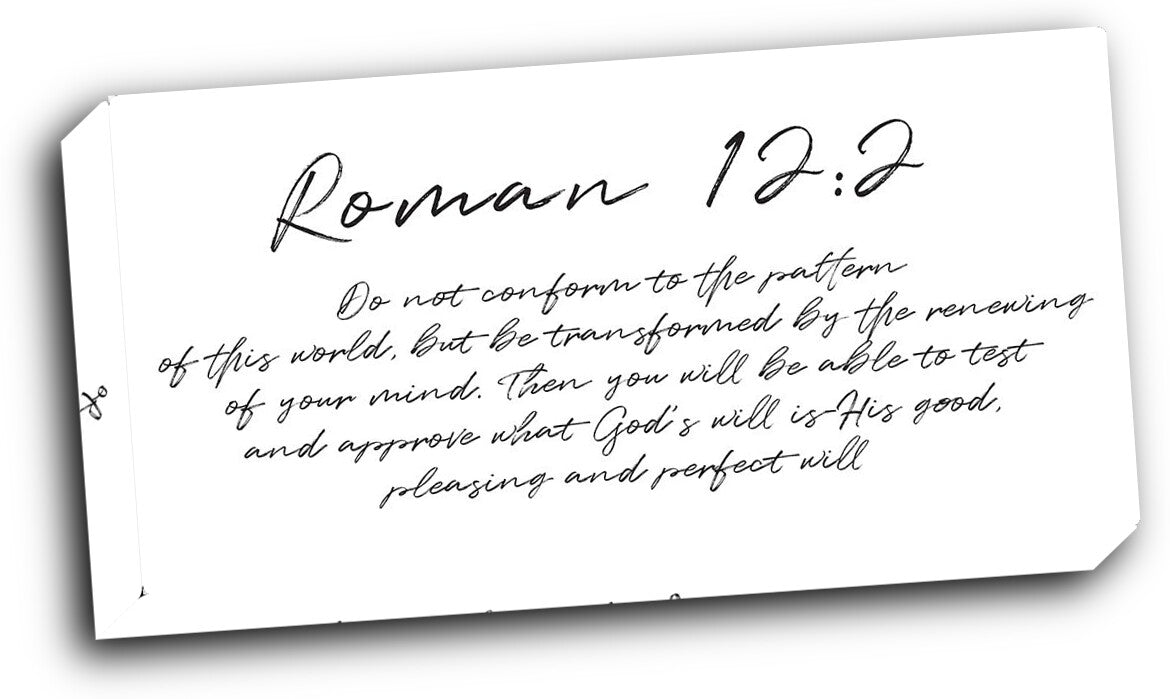 Roman 12:2
Do not conform to the pattern
of this world, but be transformed by the renewing
of your mind. Then you will be able to test
and approve what God's will is-His good,
pleasing and perfect will